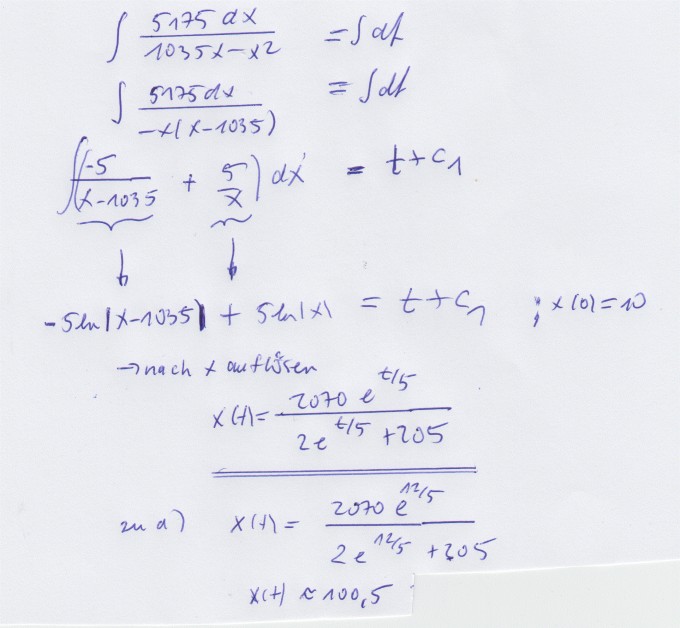 ∫ 5175 dx / (1035x - x²) = ∫ dt
∫ 5175 dx / (-x(x-1035)) = ∫ dt
∫ (-5 / (x-1035) + 5/x) dx = t + c₁
-5 ln|x-1035| + 5 ln|x| = t + c₁ ; x(0) = 10
→ nach x auflösen
x(t) = 2070 e^(t/5) / (2e^(t/5) + 205)
zu a) x(t) = 2070 e^(12/5) / (2e^(12/5) + 205)
x(t) ≈ 100,5